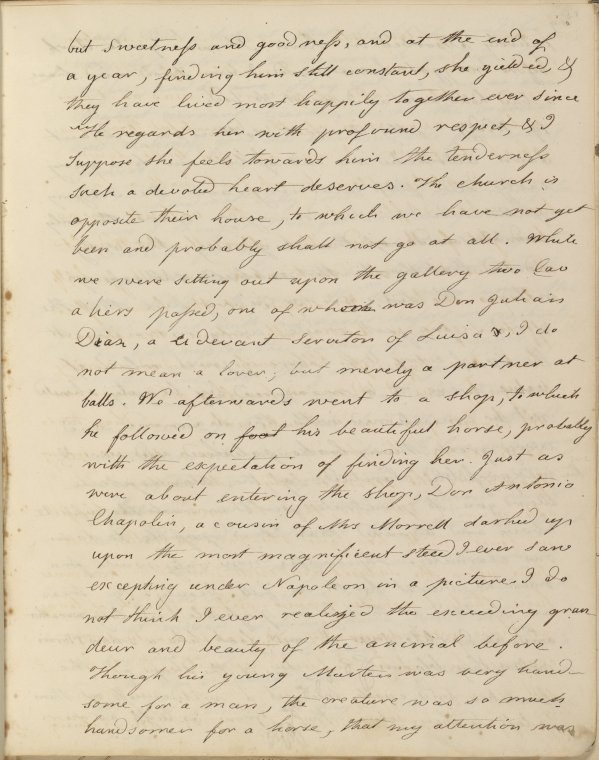 but sweetness and goodness, and at the end of
a year, finding him still constant, she yielded, &
they have lived most happily together ever since
He regards her with profound respect, & I
suppose she feels towards him the tenderness
such a devoted heart deserves. The church is
opposite their house, to which we have not yet
been and probably shall not go at all. While
we were sitting out upon the gallery two Cav
aliers passed, one of whom was Don Julian
Diaz, a ci devant servitor of Luisa's, I do
not mean a lover; but merely a partner at
balls. We afterwards went to a shop, to which
he followed on foot his beautiful horse, probably
with the expectation of finding her. Just as
were about entering the shop, Don Antonio
Chapolin, a cousin of Mrs Morrell dashed up
upon the most magnificent steed I ever saw
excepting under Napoleon in a picture. I do
not think I ever realized the exceeding gran
deur and beauty of the animal before.
Though his young Master was very hand-
some for a man, the creature was so much
handsomer for a horse, that my attention was